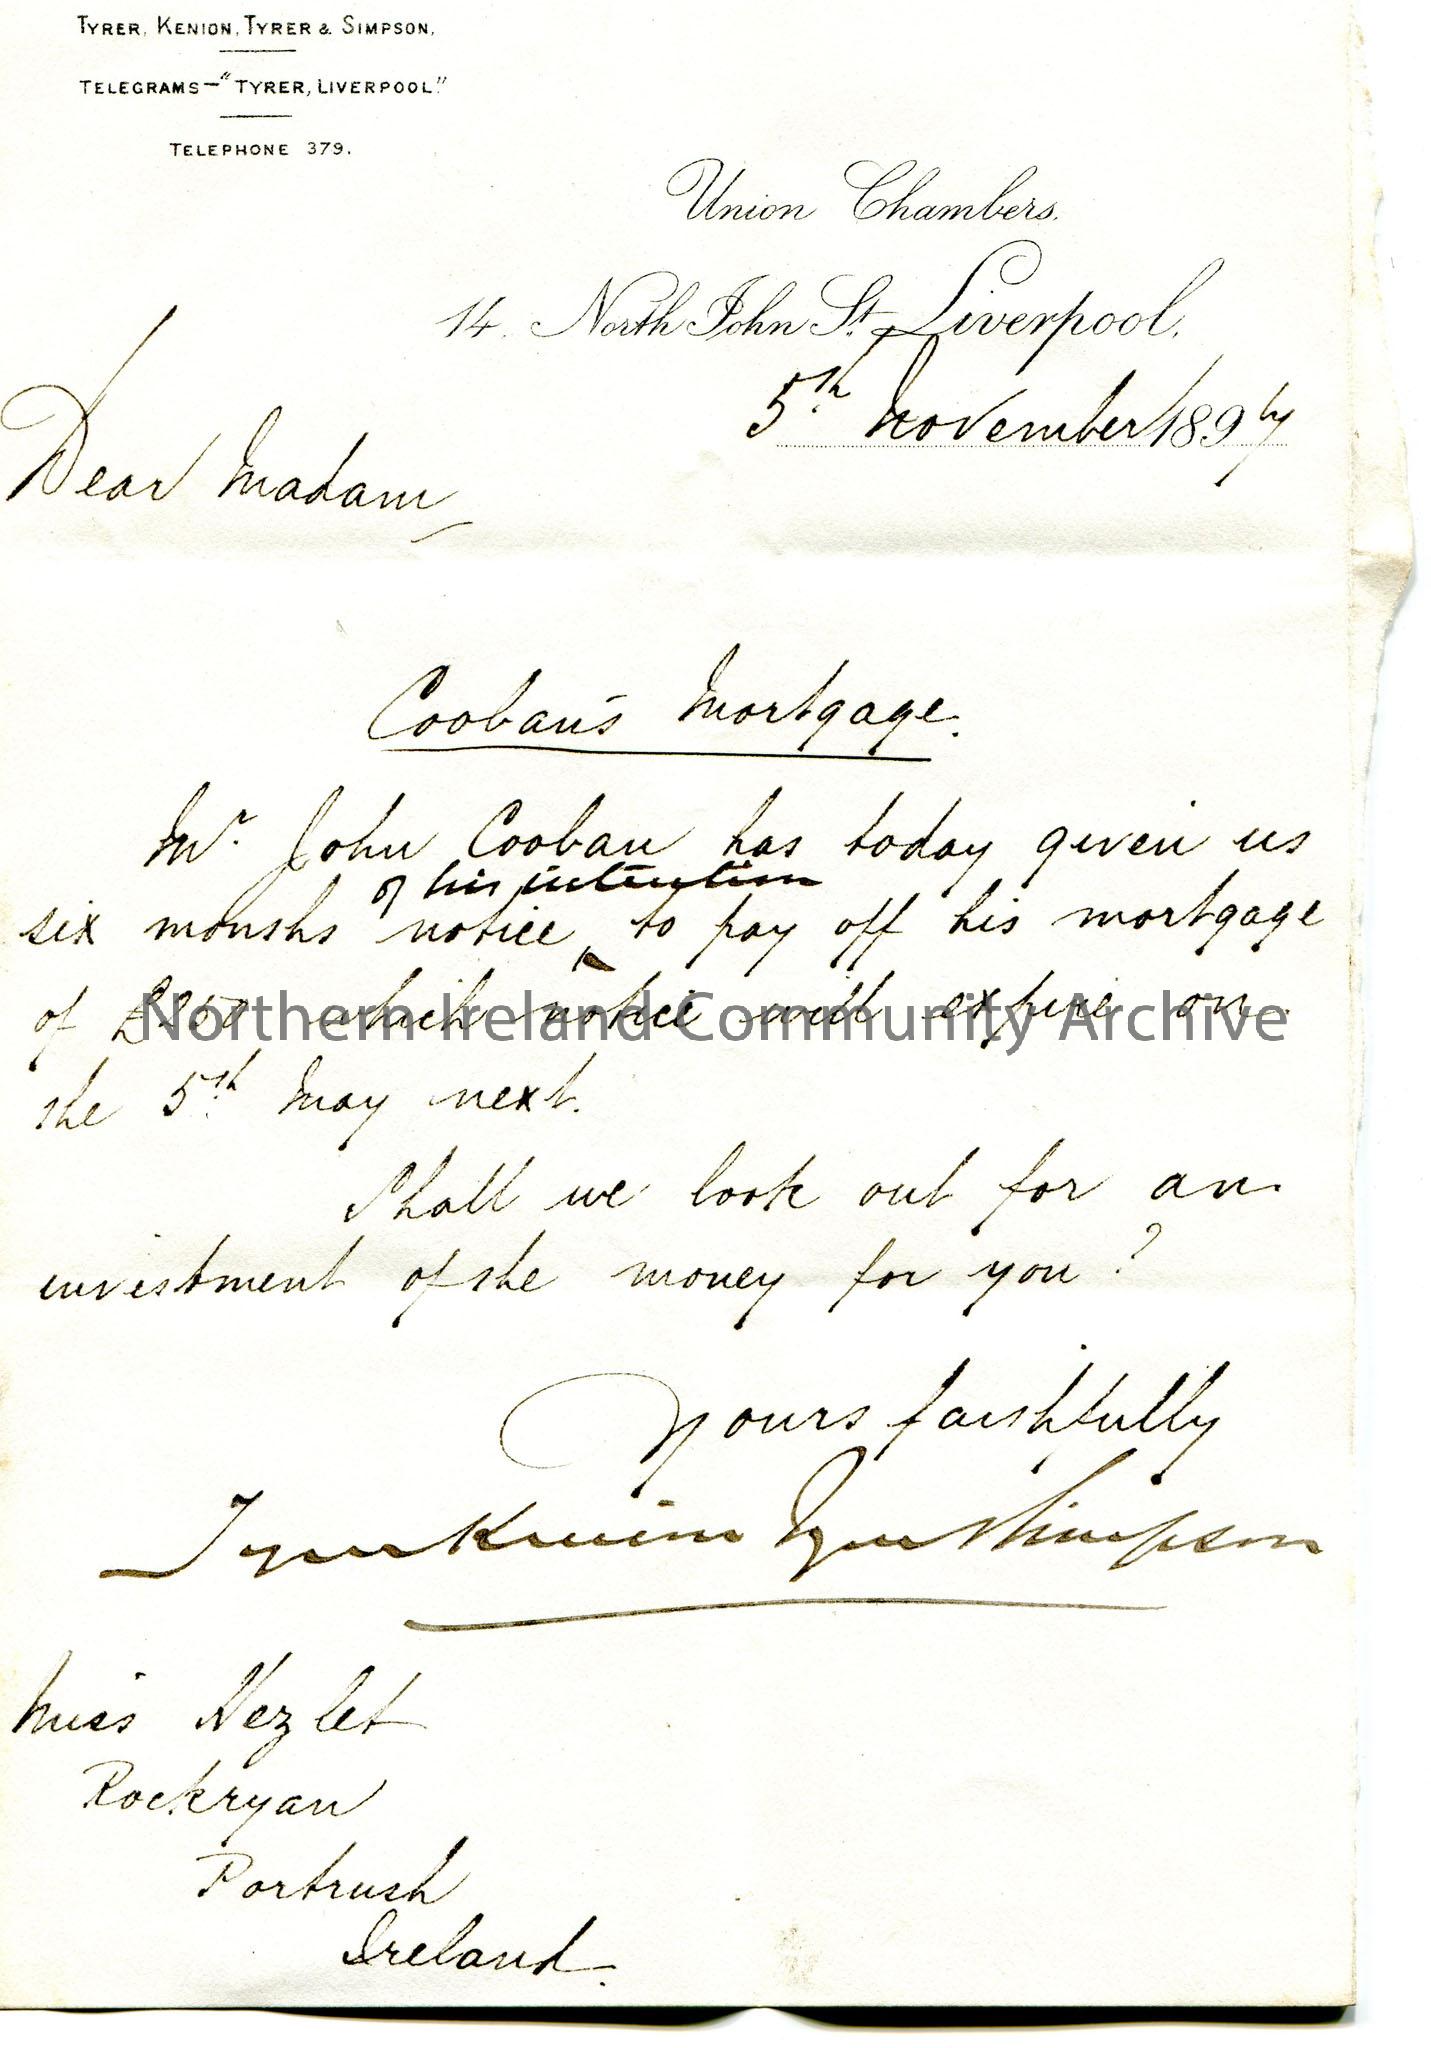 TYRER, KENION, TYRER & SIMPSON.
TELEGRAMS—"TYRER, LIVERPOOL."
TELEPHONE 379.
Union Chambers.
14. North John St. Liverpool.
5th November 1897
Dear Madam
Cooban's Mortgage.
Mr. John Cooban has today given us
of his intention
six months notice to pay off his mortgage
of £250 which notice will expire on
the 5th May next.
Shall we look out for an
investment of the money for you?
Yours faithfully
Tyrer Kenion Tyrer & Simpson
Miss Hezlet
Rockryan
Portrush
Ireland.
Northern Ireland Community Archive